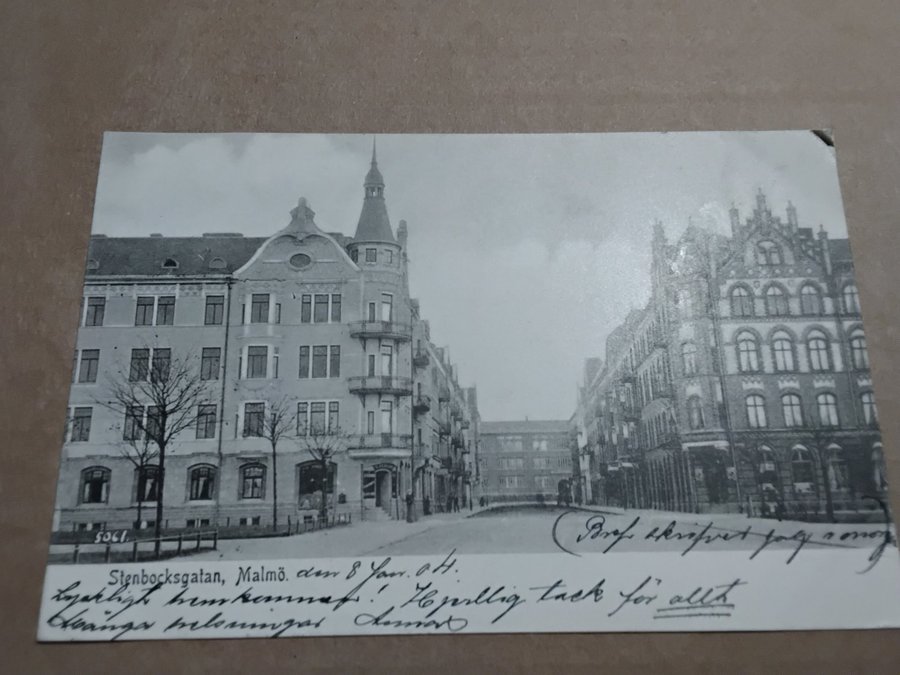 5061.
(Bref skrifvet
Stenbocksgatan, Malmö. den 8 Jan. 04.
Lyckligt hemkommen! Hjertlig tack för allt
Många helsningar